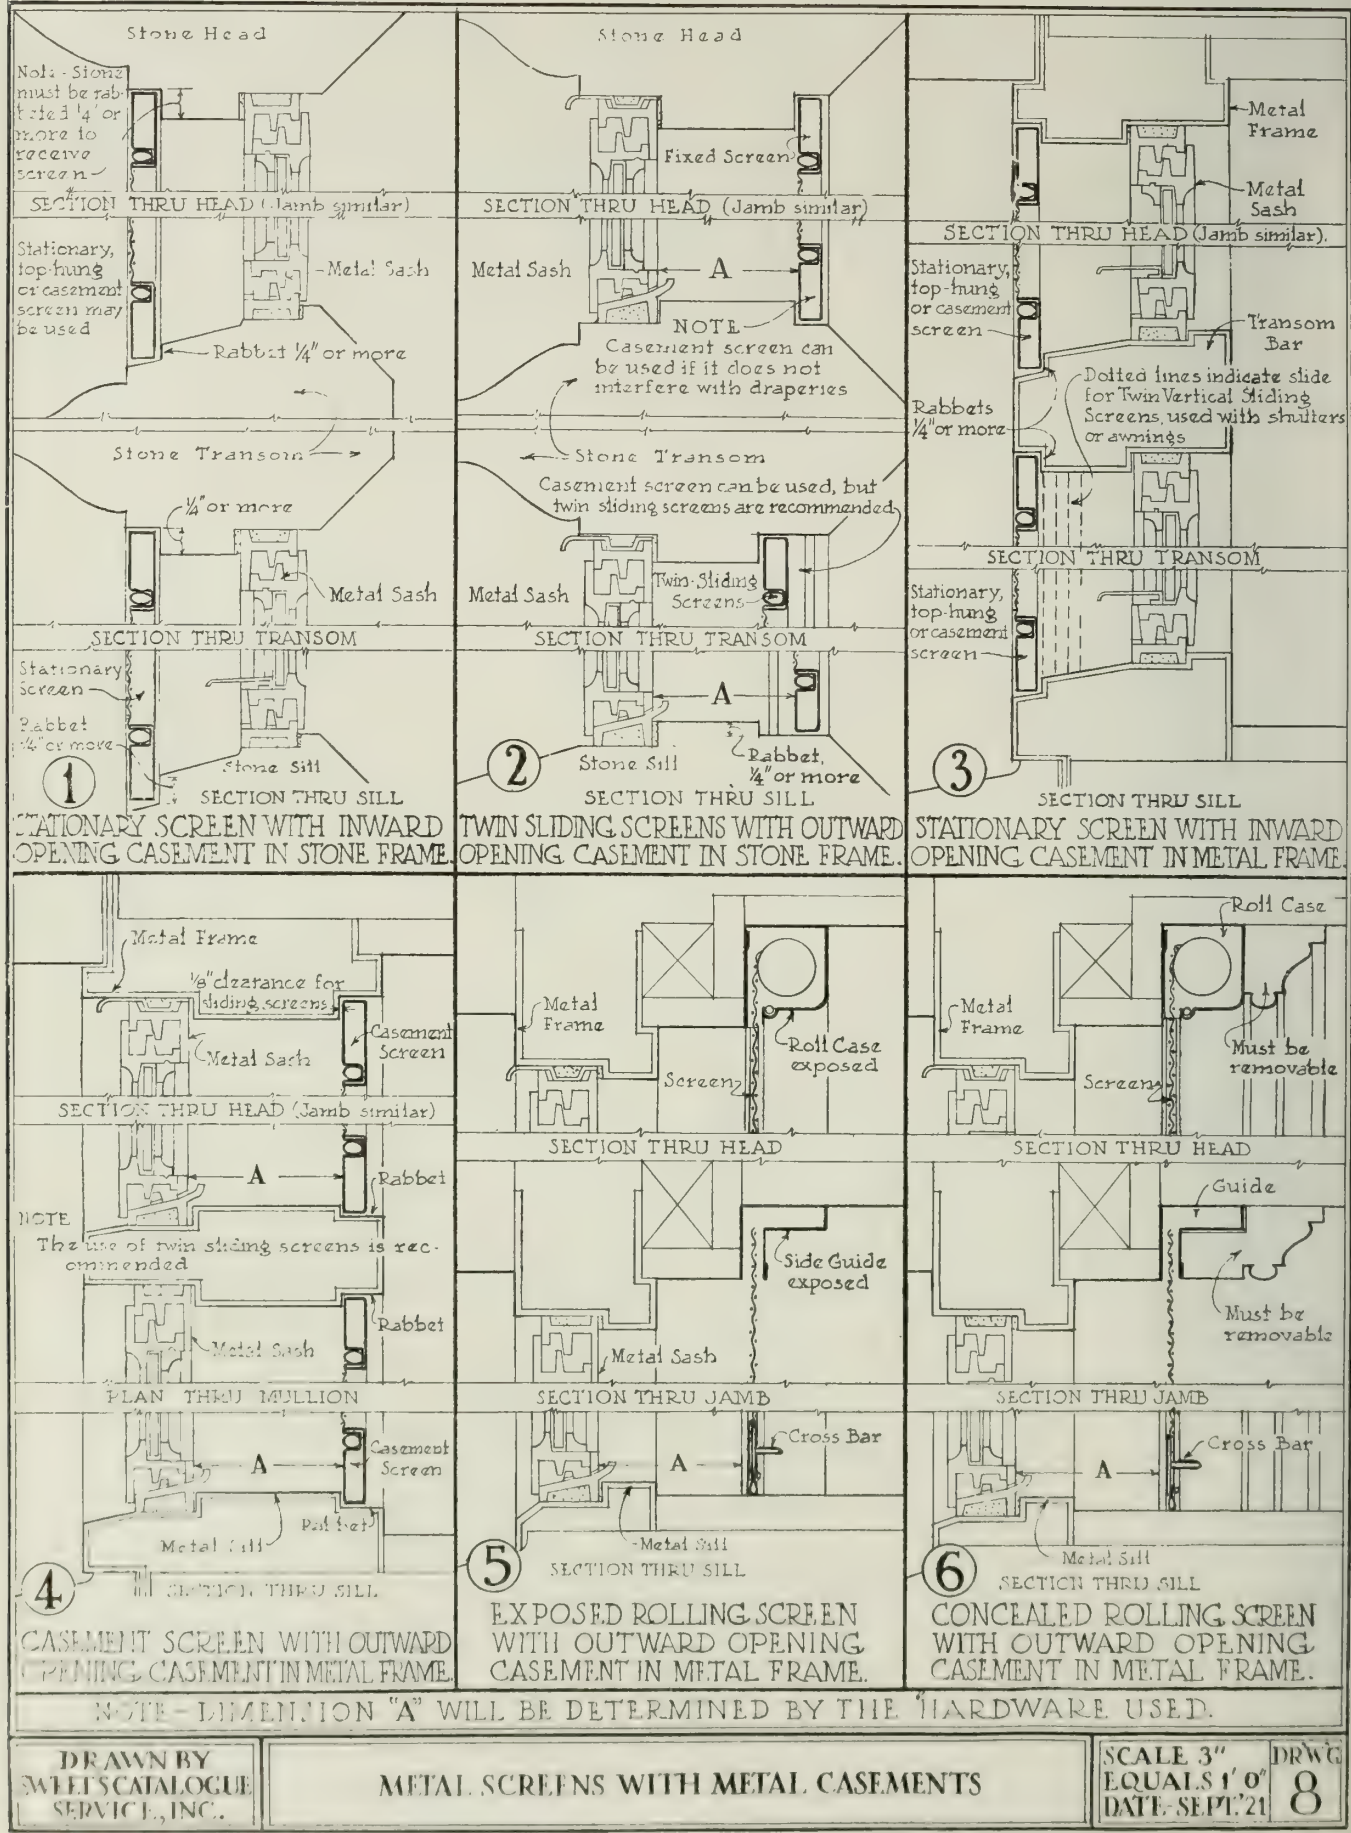 Stone Head
Note - Stone
must be rab-
beted 1/4" or
more to
receive
screen
SECTION THRU HEAD (Jamb similar)
Stationary,
top-hung
or casement
screen may
be used
Metal Sash
Rabbet 1/4" or more
Stone Transom
1/4" or more
Metal Sash
SECTION THRU TRANSOM
Stationary
Screen
Rabbet
1/4" or more
Stone Sill
1
SECTION THRU SILL
STATIONARY SCREEN WITH INWARD
OPENING CASEMENT IN STONE FRAME.
Stone Head
Fixed Screen
SECTION THRU HEAD (Jamb similar)
Metal Sash
A
NOTE
Casement screen can
be used if it does not
interfere with draperies
Stone Transom
Casement screen can be used, but
twin sliding screens are recommended
Metal Sash
Twin-Sliding
Screens
SECTION THRU TRANSOM
A
2
Stone Sill
Rabbet,
1/4" or more
SECTION THRU SILL
TWIN SLIDING SCREENS WITH OUTWARD
OPENING CASEMENT IN STONE FRAME.
Metal
Frame
Metal
Sash
SECTION THRU HEAD (Jamb similar).
Stationary,
top-hung
or casement
screen
Transom
Bar
Dotted lines indicate slide
for Twin Vertical Sliding
Screens, used with shutters
or awnings
Rabbets
1/4" or more
SECTION THRU TRANSOM
Stationary,
top-hung
or casement
screen
3
SECTION THRU SILL
STATIONARY SCREEN WITH INWARD
OPENING CASEMENT IN METAL FRAME.
Metal Frame
1/8" clearance for
sliding screens
Metal Sash
Casement
Screen
SECTION THRU HEAD (Jamb similar)
A
Rabbet
NOTE
The use of twin sliding screens is rec-
ommended
Rabbet
Metal Sash
PLAN THRU MULLION
A
Casement
Screen
Rabbet
Metal Sill
4
SECTION THRU SILL
CASEMENT SCREEN WITH OUTWARD
OPENING CASEMENT IN METAL FRAME.
Metal
Frame
Roll Case
exposed
Screen
SECTION THRU HEAD
Side Guide
exposed
Metal Sash
SECTION THRU JAMB
Cross Bar
A
5
Metal Sill
SECTION THRU SILL
EXPOSED ROLLING SCREEN
WITH OUTWARD OPENING
CASEMENT IN METAL FRAME.
Roll Case
Metal
Frame
Must be
removable
Screen
SECTION THRU HEAD
Guide
Must be
removable
SECTION THRU JAMB
Cross Bar
A
6
Metal Sill
SECTION THRU SILL
CONCEALED ROLLING SCREEN
WITH OUTWARD OPENING
CASEMENT IN METAL FRAME.
NOTE - DIMENSION "A" WILL BE DETERMINED BY THE HARDWARE USED.
DRAWN BY
SWEET'S CATALOGUE
SERVICE, INC.
METAL SCREENS WITH METAL CASEMENTS
SCALE 3"
EQUALS 1' 0"
DATE-SEPT.'21
DRWG
8